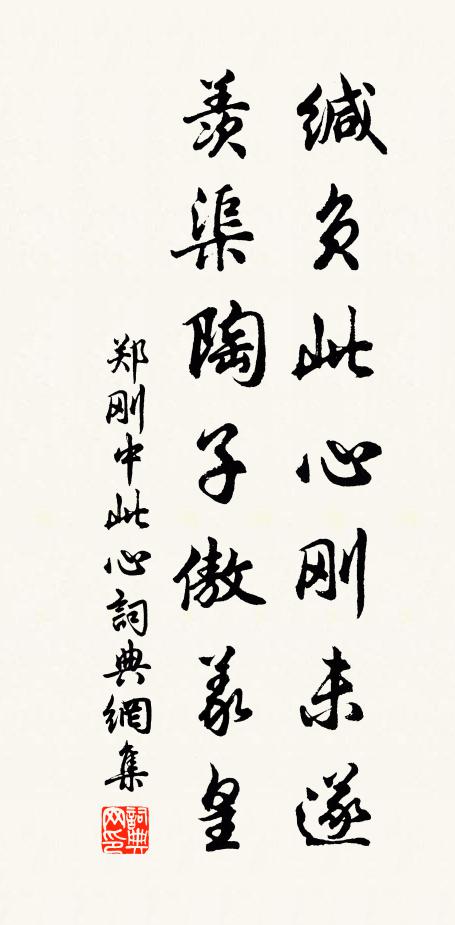 缄负此心刚未遂
羡渠陶子傲羲皇
郑刚中此心詞典網集
詞典网印